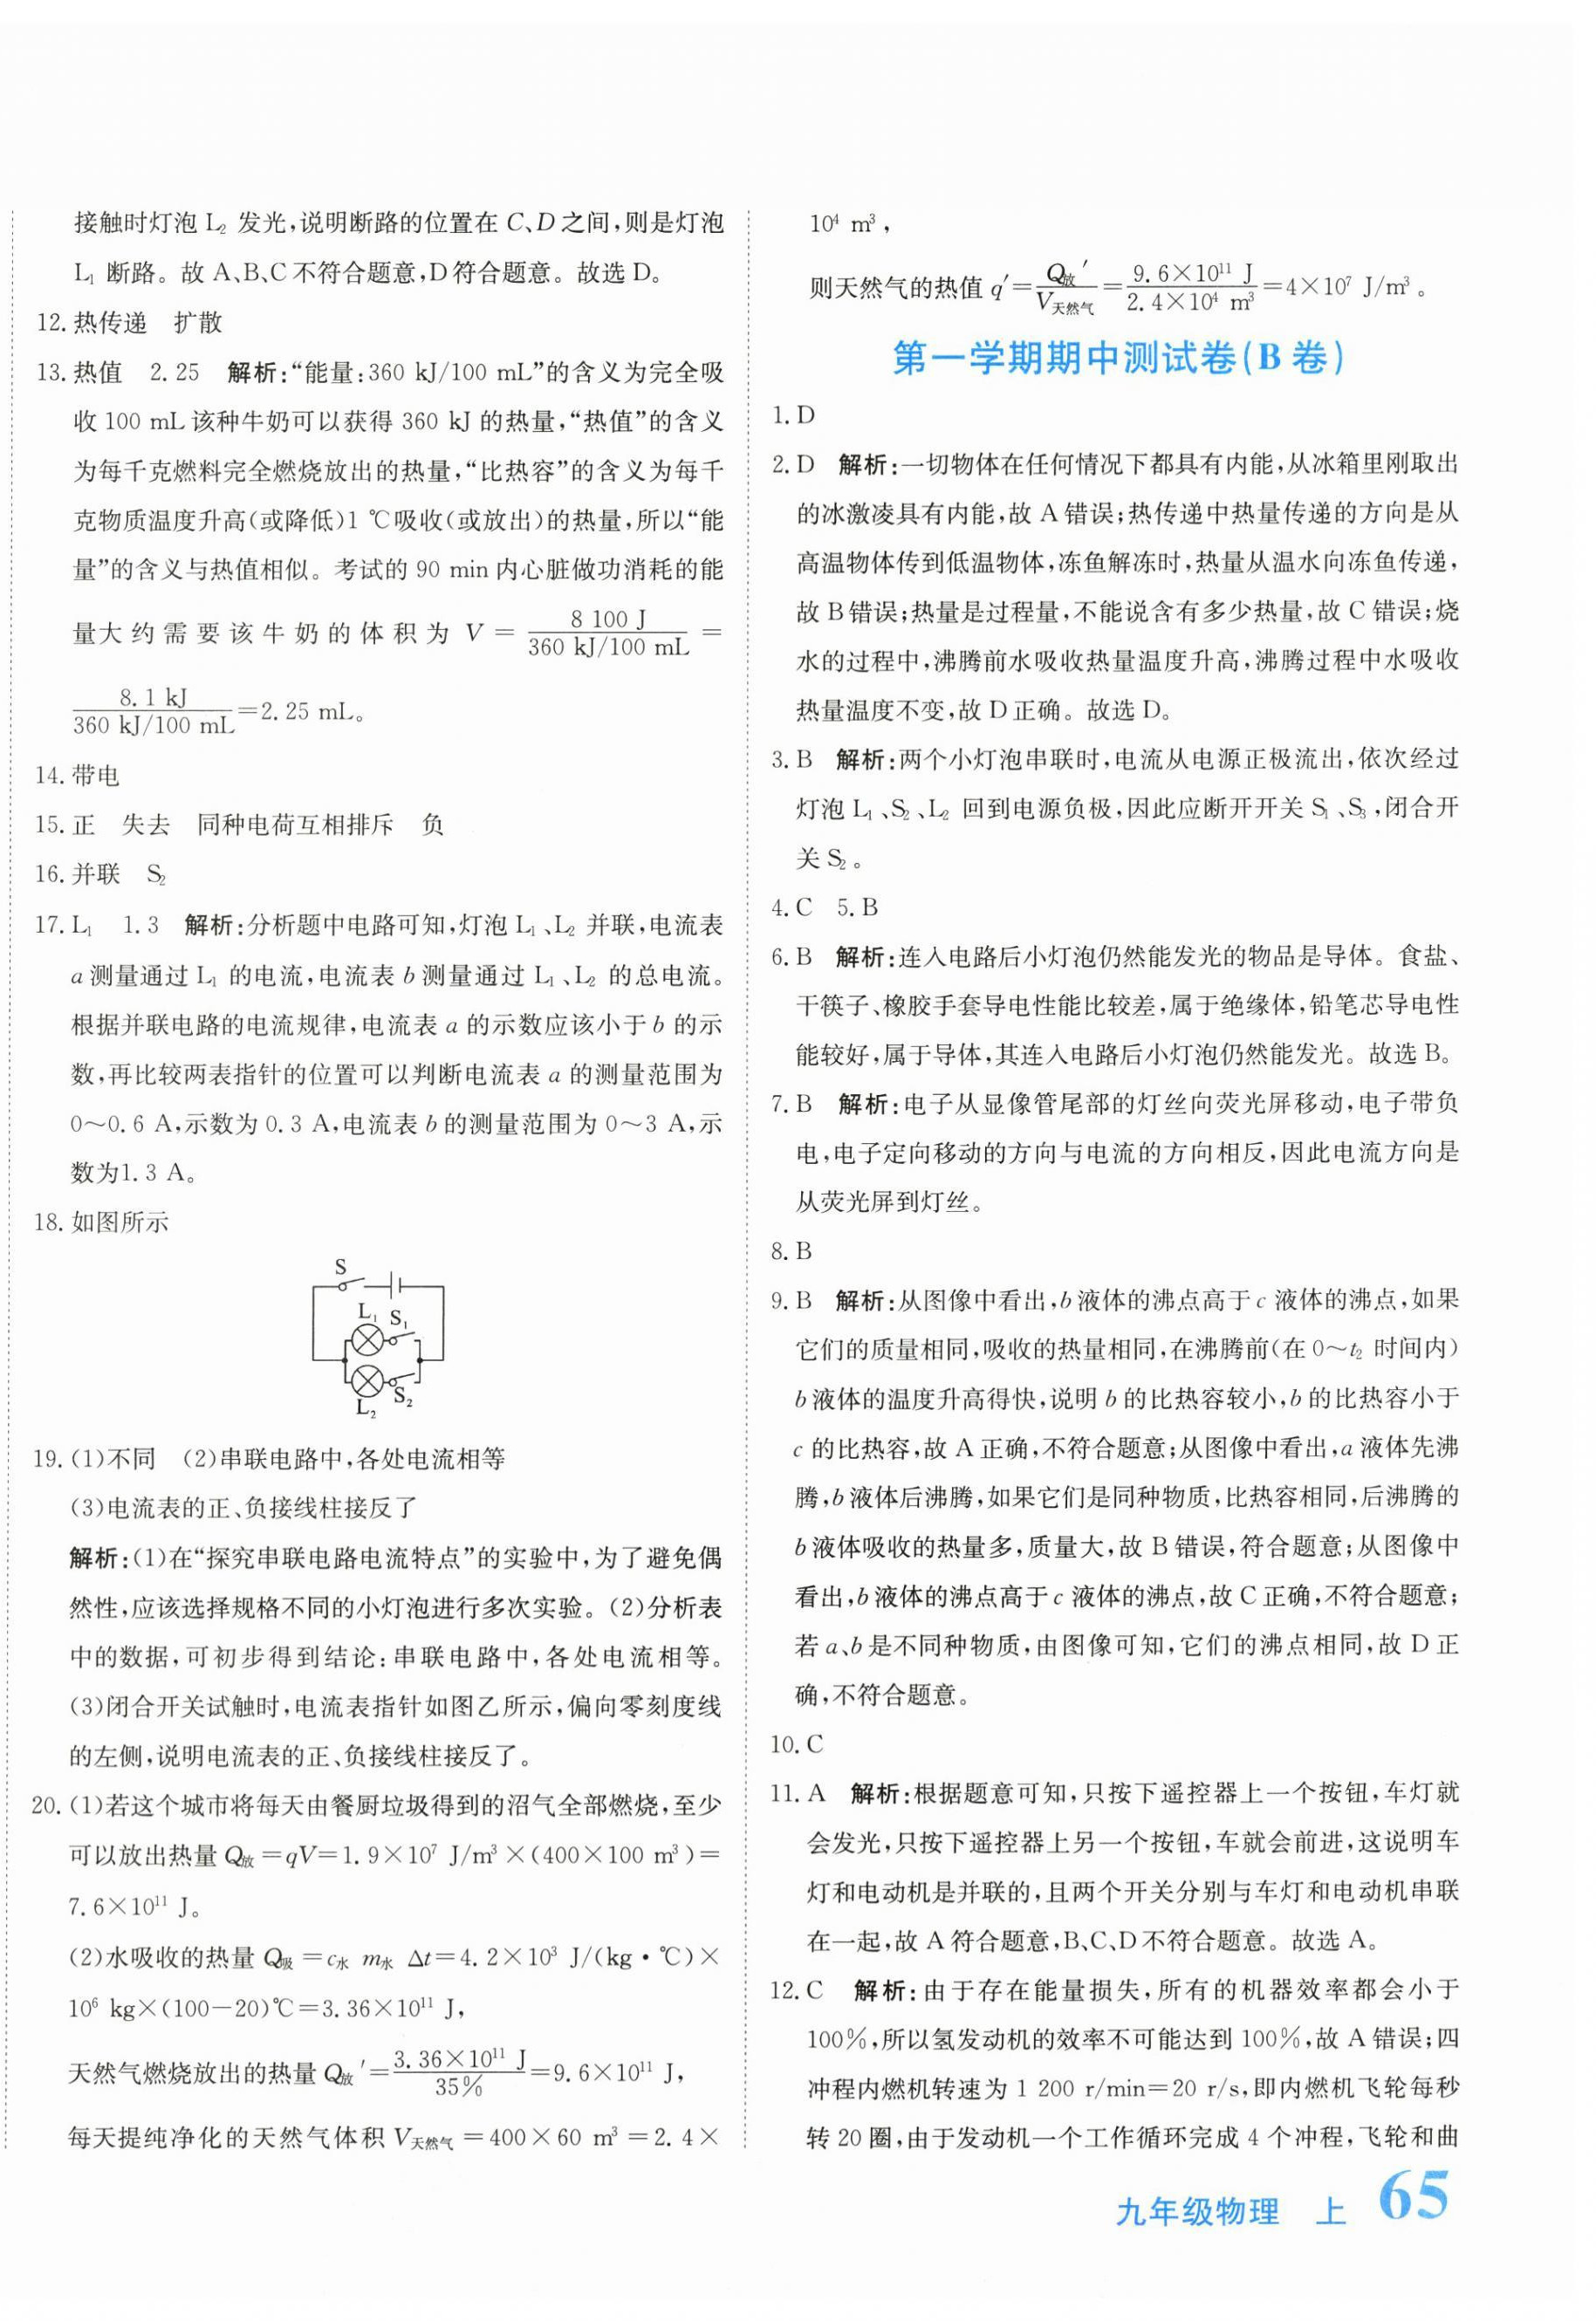 接触时灯泡 L₂ 发光,说明断路的位置在 C、D 之间,则是灯泡
L₁ 断路。故 A、B、C 不符合题意,D 符合题意。故选 D。
12. 热传递　扩散
13. 热值　2.25　解析:“能量:360 kJ/100 mL”的含义为完全吸
收 100 mL 该种牛奶可以获得 360 kJ 的热量,“热值”的含义
为每千克燃料完全燃烧放出的热量,“比热容”的含义为每千
克物质温度升高(或降低)1 ℃吸收(或放出)的热量,所以“能
量”的含义与热值相似。考试的 90 min 内心脏做功消耗的能
量大约需要该牛奶的体积为 V = 8 100 J / 360 kJ/100 mL =
8.1 kJ / 360 kJ/100 mL =2.25 mL。
14. 带电
15. 正　失去　同种电荷互相排斥　负
16. 并联　S₂
17. L₁　1.3　解析:分析题中电路可知,灯泡 L₁、L₂ 并联,电流表
a 测量通过 L₁ 的电流,电流表 b 测量通过 L₁、L₂ 的总电流。
根据并联电路的电流规律,电流表 a 的示数应该小于 b 的示
数,再比较两表指针的位置可以判断电流表 a 的测量范围为
0～0.6 A,示数为 0.3 A,电流表 b 的测量范围为 0～3 A,示
数为1.3 A。
18. 如图所示
S
L₁ S₁
S₂
L₂
19. (1)不同　(2)串联电路中,各处电流相等
(3)电流表的正、负接线柱接反了
解析:(1)在“探究串联电路电流特点”的实验中,为了避免偶
然性,应该选择规格不同的小灯泡进行多次实验。(2)分析表
中的数据,可初步得到结论:串联电路中,各处电流相等。
(3)闭合开关试触时,电流表指针如图乙所示,偏向零刻度线
的左侧,说明电流表的正、负接线柱接反了。
20. (1)若这个城市将每天由餐厨垃圾得到的沼气全部燃烧,至少
可以放出热量 Q放 =qV=1.9×10⁷ J/m³×(400×100 m³)=
7.6×10¹¹ J。
(2)水吸收的热量 Q吸 =c水 m水 Δt=4.2×10³ J/(kg·℃)×
10⁶ kg×(100−20)℃=3.36×10¹¹ J,
天然气燃烧放出的热量 Q放′= 3.36×10¹¹ J / 35% =9.6×10¹¹ J,
每天提纯净化的天然气体积 V天然气 =400×60 m³=2.4×
10⁴ m³,
则天然气的热值 q′= Q放′ / V天然气 = 9.6×10¹¹ J / 2.4×10⁴ m³ =4×10⁷ J/m³。
第一学期期中测试卷(B 卷)
1. D
2. D　解析:一切物体在任何情况下都具有内能,从冰箱里刚取出
的冰激凌具有内能,故 A 错误;热传递中热量传递的方向是从
高温物体传到低温物体,冻鱼解冻时,热量从温水向冻鱼传递,
故 B 错误;热量是过程量,不能说含有多少热量,故 C 错误;烧
水的过程中,沸腾前水吸收热量温度升高,沸腾过程中水吸收
热量温度不变,故 D 正确。故选 D。
3. B　解析:两个小灯泡串联时,电流从电源正极流出,依次经过
灯泡 L₁、S₂、L₂ 回到电源负极,因此应断开开关 S₁、S₃,闭合开
关 S₂。
4. C　5. B
6. B　解析:连入电路后小灯泡仍然能发光的物品是导体。食盐、
干筷子、橡胶手套导电性能比较差,属于绝缘体,铅笔芯导电性
能较好,属于导体,其连入电路后小灯泡仍然能发光。故选 B。
7. B　解析:电子从显像管尾部的灯丝向荧光屏移动,电子带负
电,电子定向移动的方向与电流的方向相反,因此电流方向是
从荧光屏到灯丝。
8. B
9. B　解析:从图像中看出,b 液体的沸点高于 c 液体的沸点,如果
它们的质量相同,吸收的热量相同,在沸腾前(在 0～t₂ 时间内)
b 液体的温度升高得快,说明 b 的比热容较小,b 的比热容小于
c 的比热容,故 A 正确,不符合题意;从图像中看出,a 液体先沸
腾,b 液体后沸腾,如果它们是同种物质,比热容相同,后沸腾的
b 液体吸收的热量多,质量大,故 B 错误,符合题意;从图像中
看出,b 液体的沸点高于 c 液体的沸点,故 C 正确,不符合题意;
若 a、b 是不同种物质,由图像可知,它们的沸点相同,故 D 正
确,不符合题意。
10. C
11. A　解析:根据题意可知,只按下遥控器上一个按钮,车灯就
会发光,只按下遥控器上另一个按钮,车就会前进,这说明车
灯和电动机是并联的,且两个开关分别与车灯和电动机串联
在一起,故 A 符合题意,B、C、D 不符合题意。故选 A。
12. C　解析:由于存在能量损失,所有的机器效率都会小于
100%,所以氢发动机的效率不可能达到 100%,故 A 错误;四
冲程内燃机转速为 1 200 r/min=20 r/s,即内燃机飞轮每秒
转 20 圈,由于发动机一个工作循环完成 4 个冲程,飞轮和曲
九年级物理　上　65